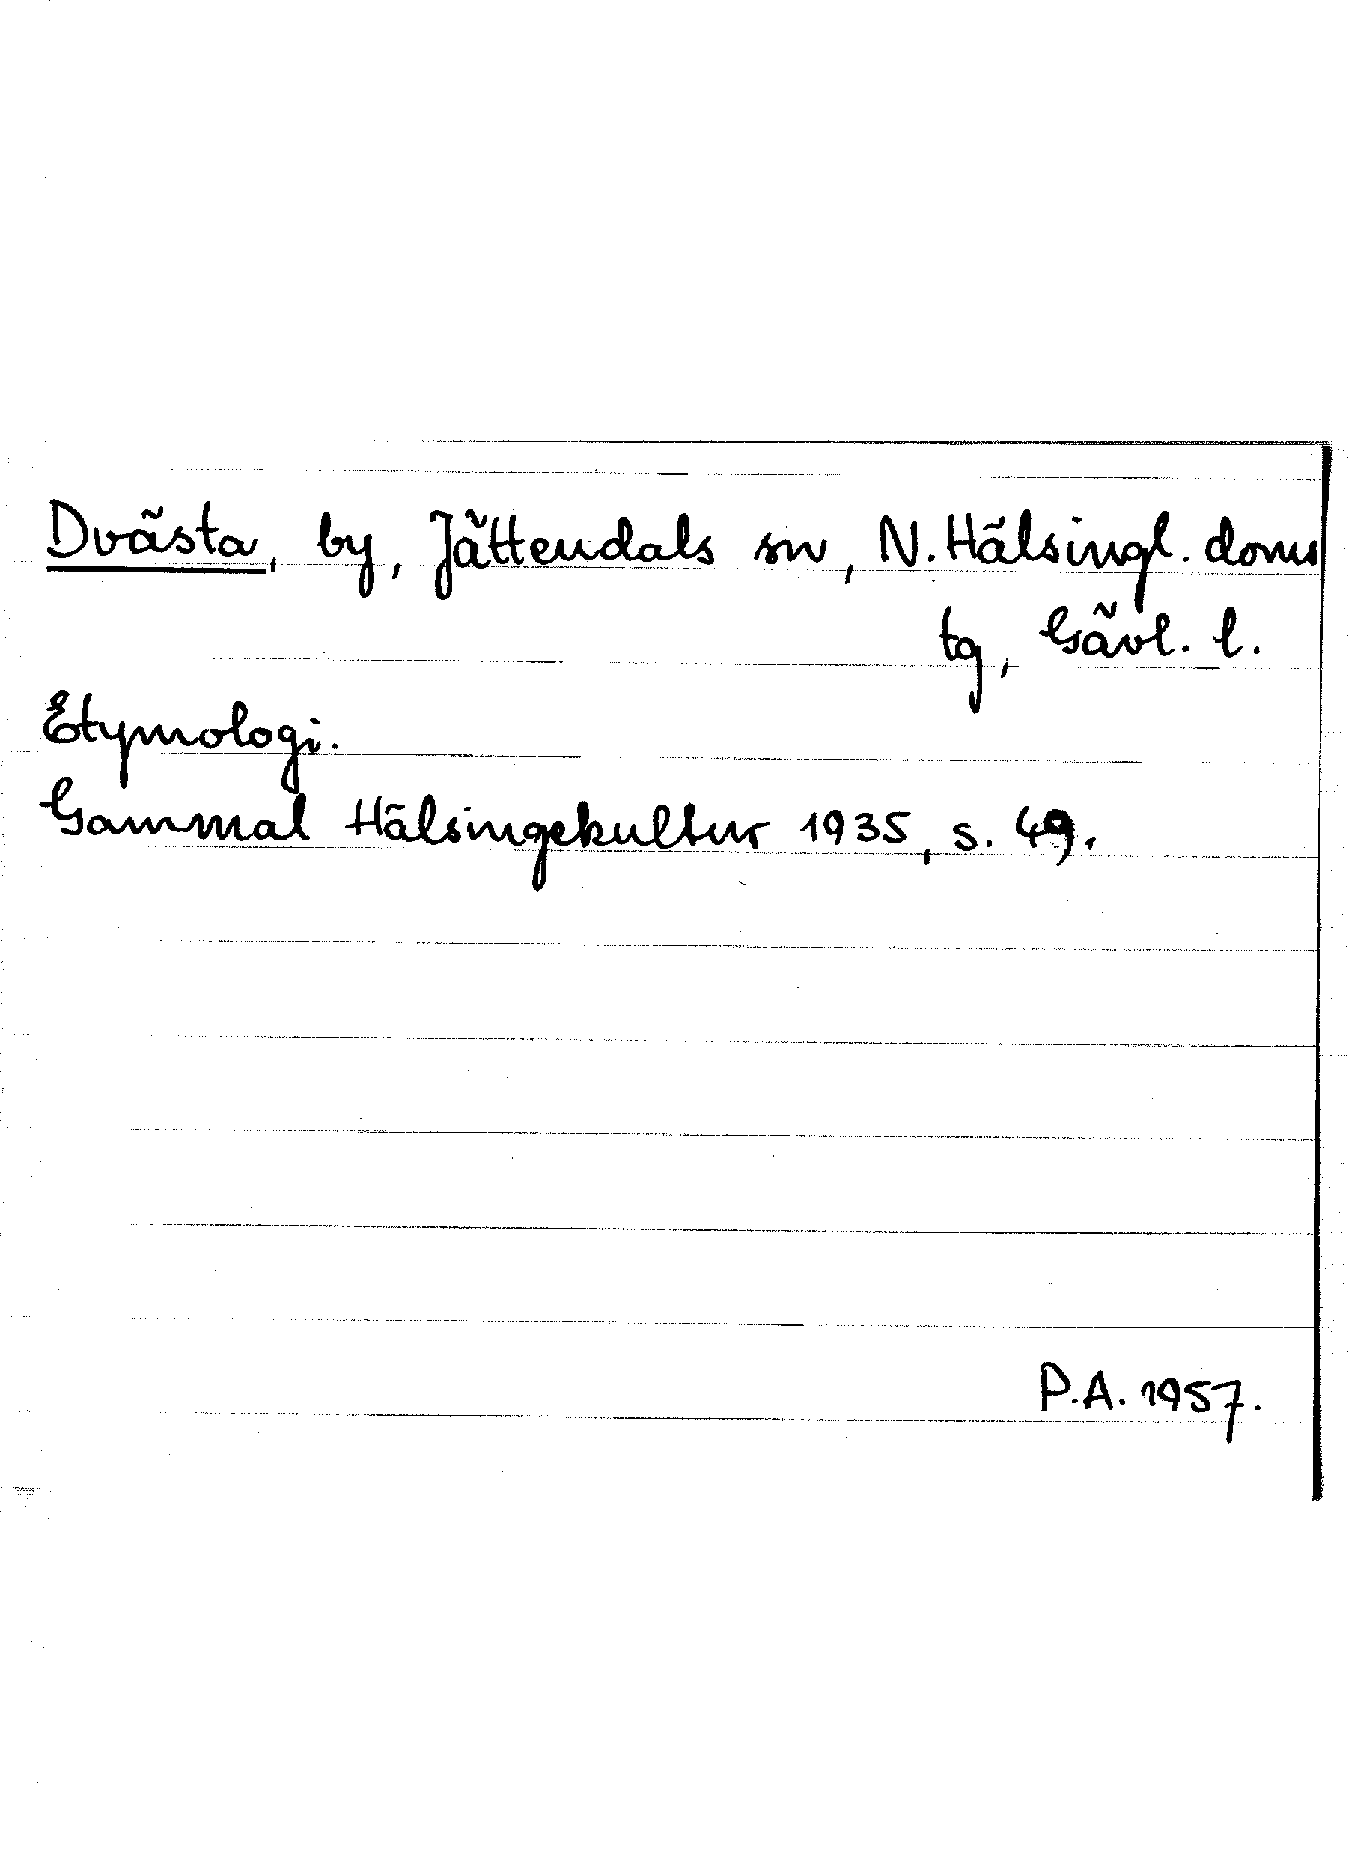 Dvästa, by, Jättendals sn, N. Hälsingl. doms
tg, Gävl. l.
Etymologi.
Gammal Hälsingekultur 1935, s. 49.
P.A. 1957.